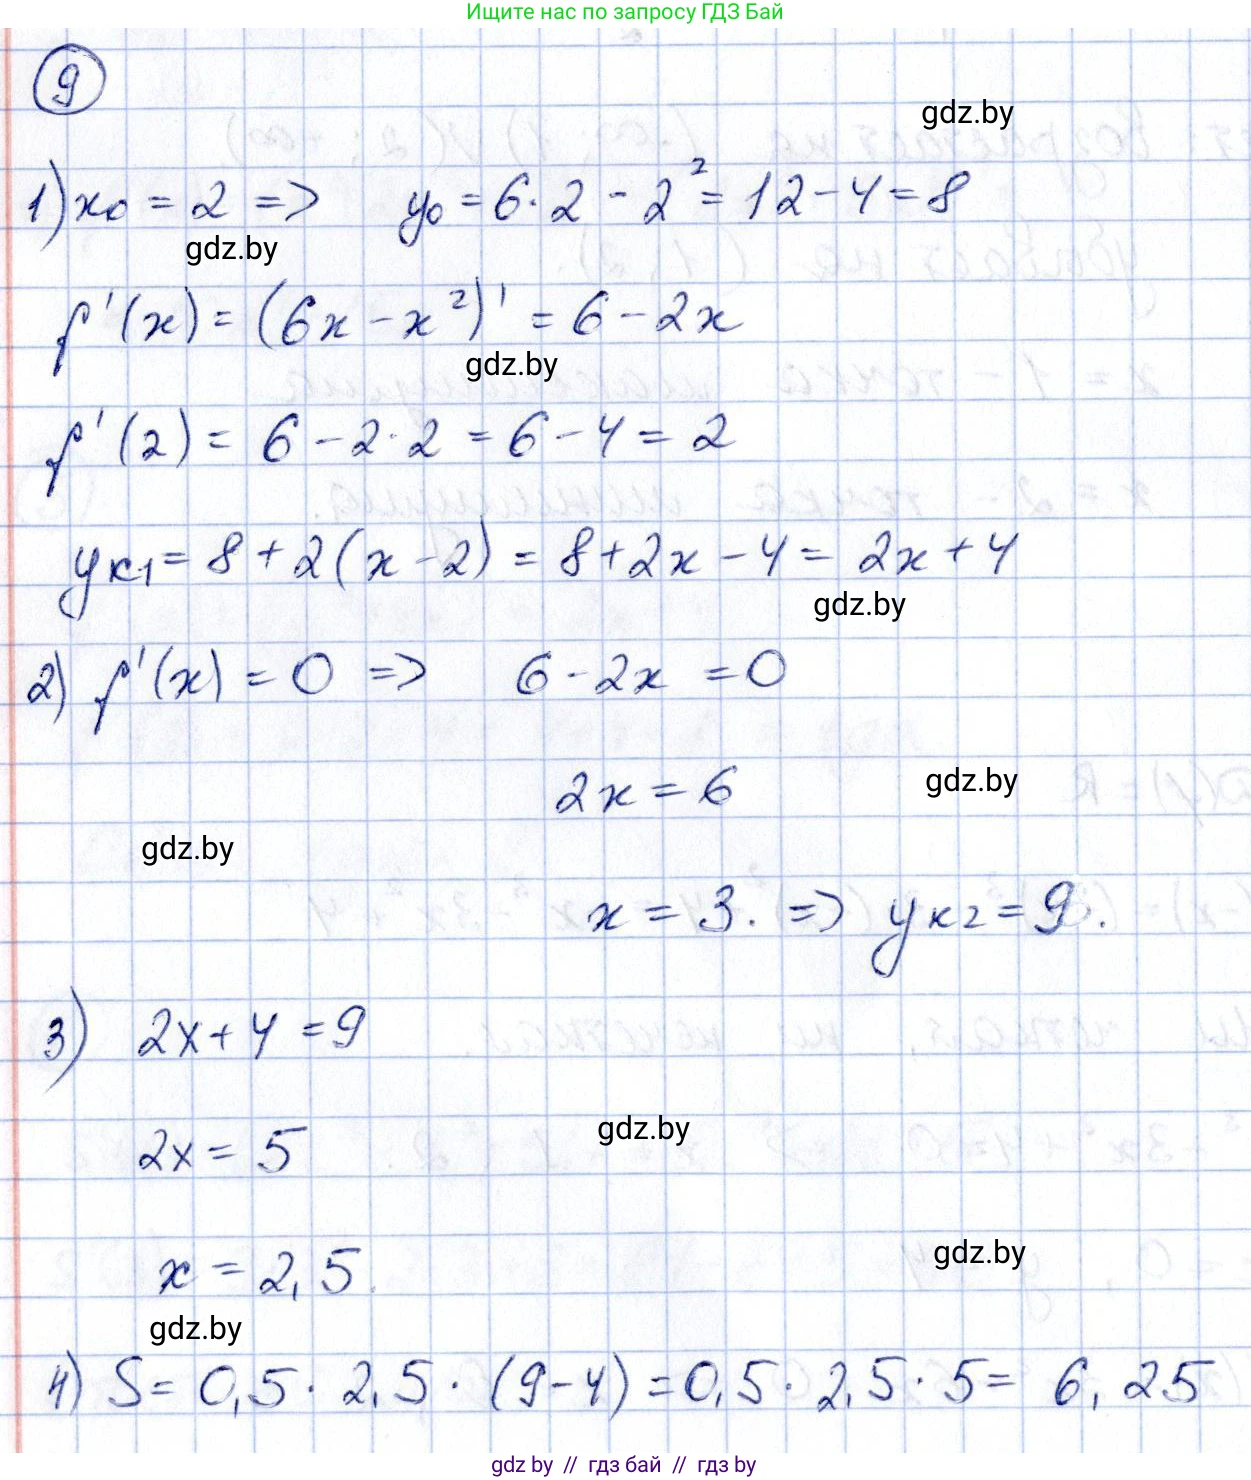 Ищите нас по запросу ГДЗ Бай
9
gdz.by
1) x₀ = 2 => y₀ = 6·2 - 2² = 12 - 4 = 8
gdz.by
f'(x) = (6x - x²)' = 6 - 2x
gdz.by
f'(2) = 6 - 2·2 = 6 - 4 = 2
yк1 = 8 + 2(x - 2) = 8 + 2x - 4 = 2x + 4
gdz.by
2) f'(x) = 0 => 6 - 2x = 0
2x = 6
gdz.by
gdz.by
x = 3. => yк2 = 9.
3) 2x + 4 = 9
gdz.by
2x = 5
gdz.by
x = 2,5.
gdz.by
4) S = 0,5 · 2,5 · (9 - 4) = 0,5 · 2,5 · 5 = 6,25
gdz.by // гдз бай // гдз by